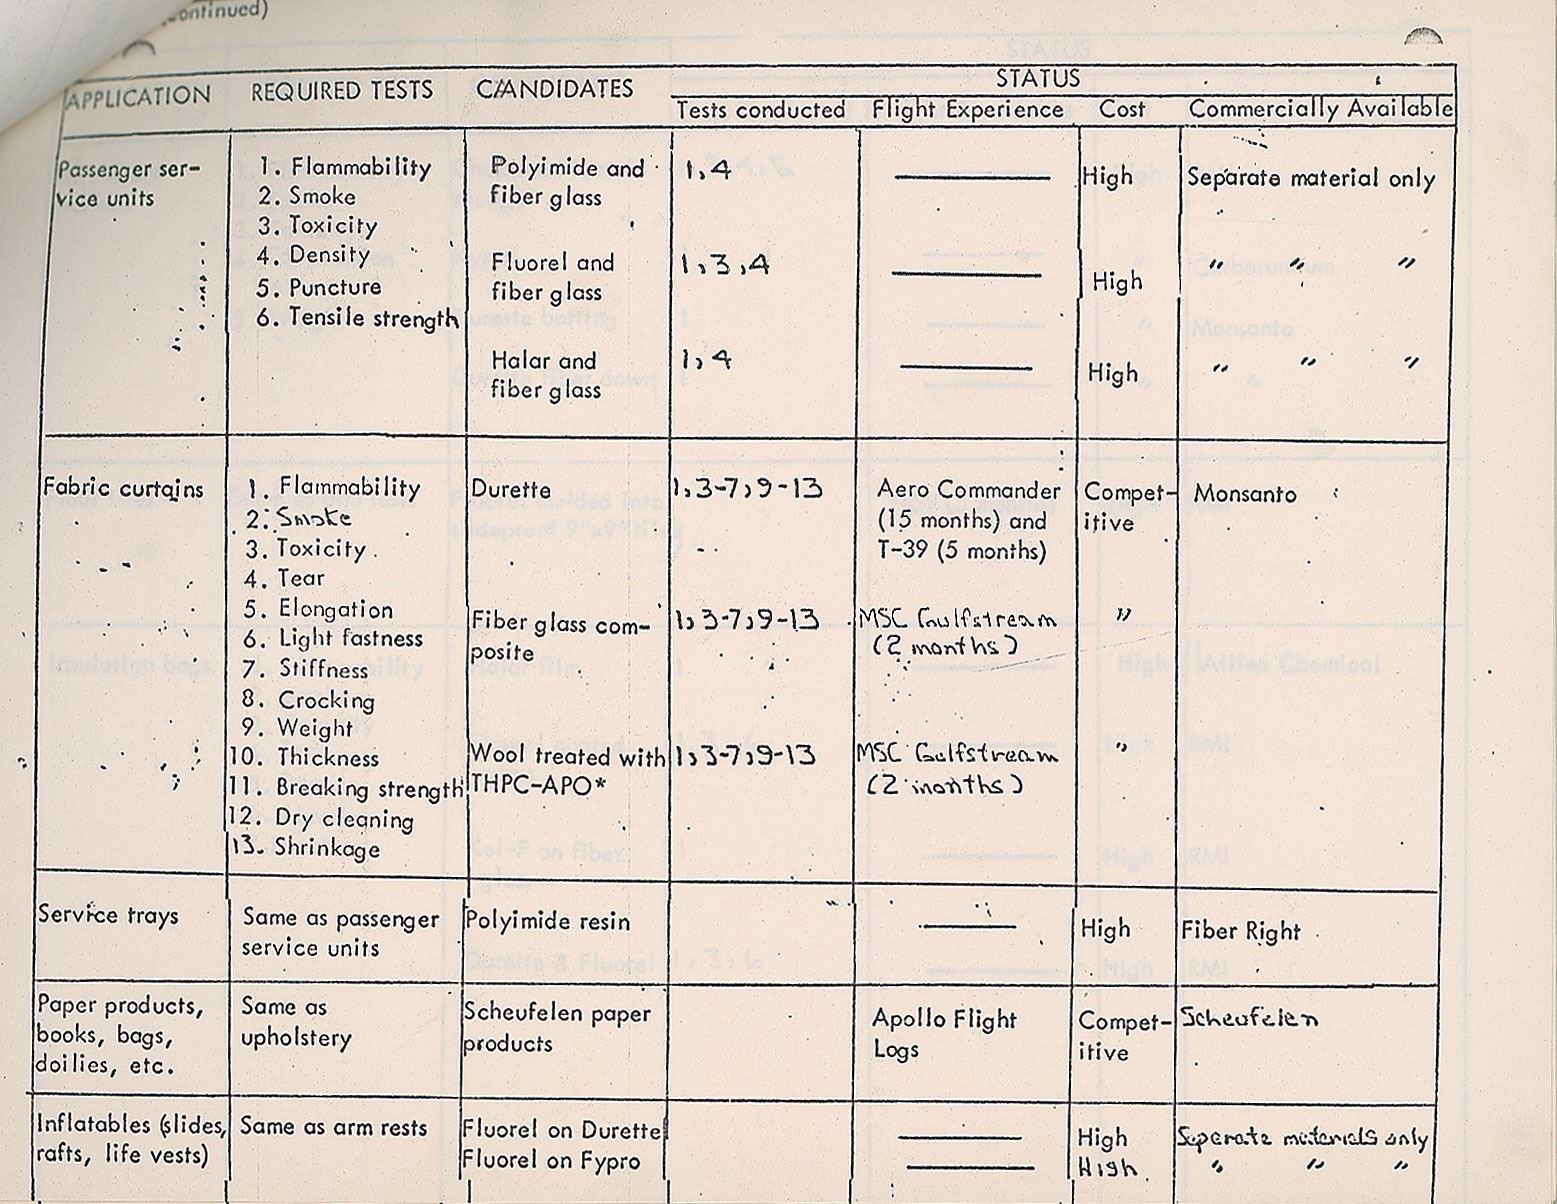 continued)
STATUS
APPLICATION REQUIRED TESTS CANDIDATES
Tests conducted Flight Experience Cost Commercially Available
Passenger ser- 1. Flammability Polyimide and 1,4 High Separate material only
vice units 2. Smoke fiber glass
3. Toxicity
4. Density Fluorel and 1,3,4 High " " "
5. Puncture fiber glass
6. Tensile strength
Halar and 1,4 High " " "
fiber glass
Fabric curtains 1. Flammability Durette 1,3-7,9-13 Aero Commander Compet- Monsanto
2. Smoke (15 months) and itive
3. Toxicity T-39 (5 months)
4. Tear
5. Elongation Fiber glass com- 1,3-7,9-13 MSC Gulfstream "
6. Light fastness posite (2 months)
7. Stiffness
8. Crocking
9. Weight
10. Thickness Wool treated with 1,3-7,9-13 MSC Gulfstream "
11. Breaking strength THPC-APO* (2 months)
12. Dry cleaning
13. Shrinkage
Service trays Same as passenger Polyimide resin High Fiber Right
service units
Paper products, Same as Scheufelen paper Apollo Flight Compet- Scheufelen
books, bags, upholstery products Logs itive
doilies, etc.
Inflatables (slides, Same as arm rests Fluorel on Durette High Separate materials only
rafts, life vests) Fluorel on Fypro High " " "